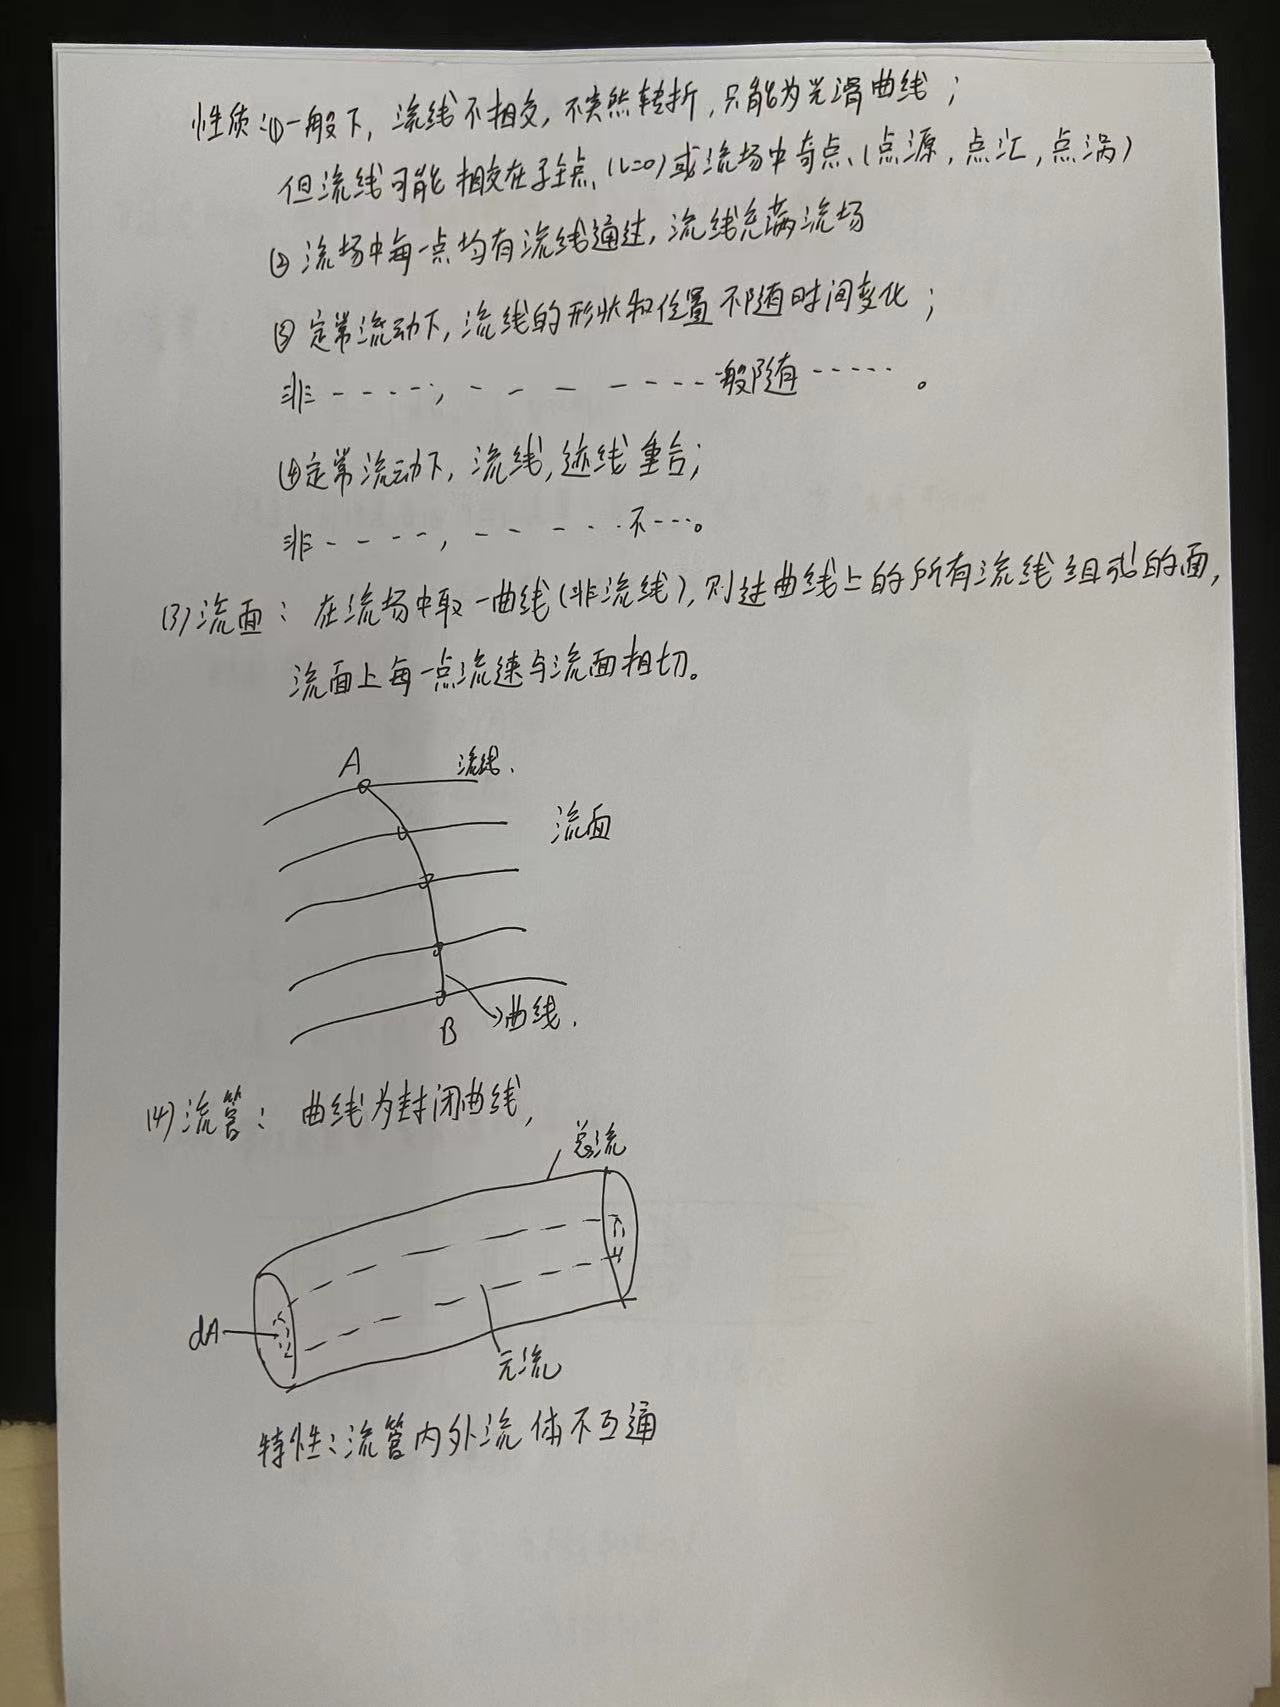 性质:①一般下,流线不相交,不突然转折,只能为光滑曲线;
但流线可能相交在驻点(v=0)或流场中奇点(点源,点汇,点涡)
② 流场中每一点均有流线通过,流线充满流场
③ 定常流动下,流线的形状和位置不随时间变化;
非-----,- - - ----一般随-----。
④定常流动下,流线,迹线重合;
非----,- - - - -不---。
(3)流面:在流场中取一曲线(非流线),则过曲线上的所有流线组成的面,
流面上每一点流速与流面相切。
A 流线.
流面
B 曲线.
(4)流管:曲线为封闭曲线,
总流
dA
元流
特性:流管内外流体不互通